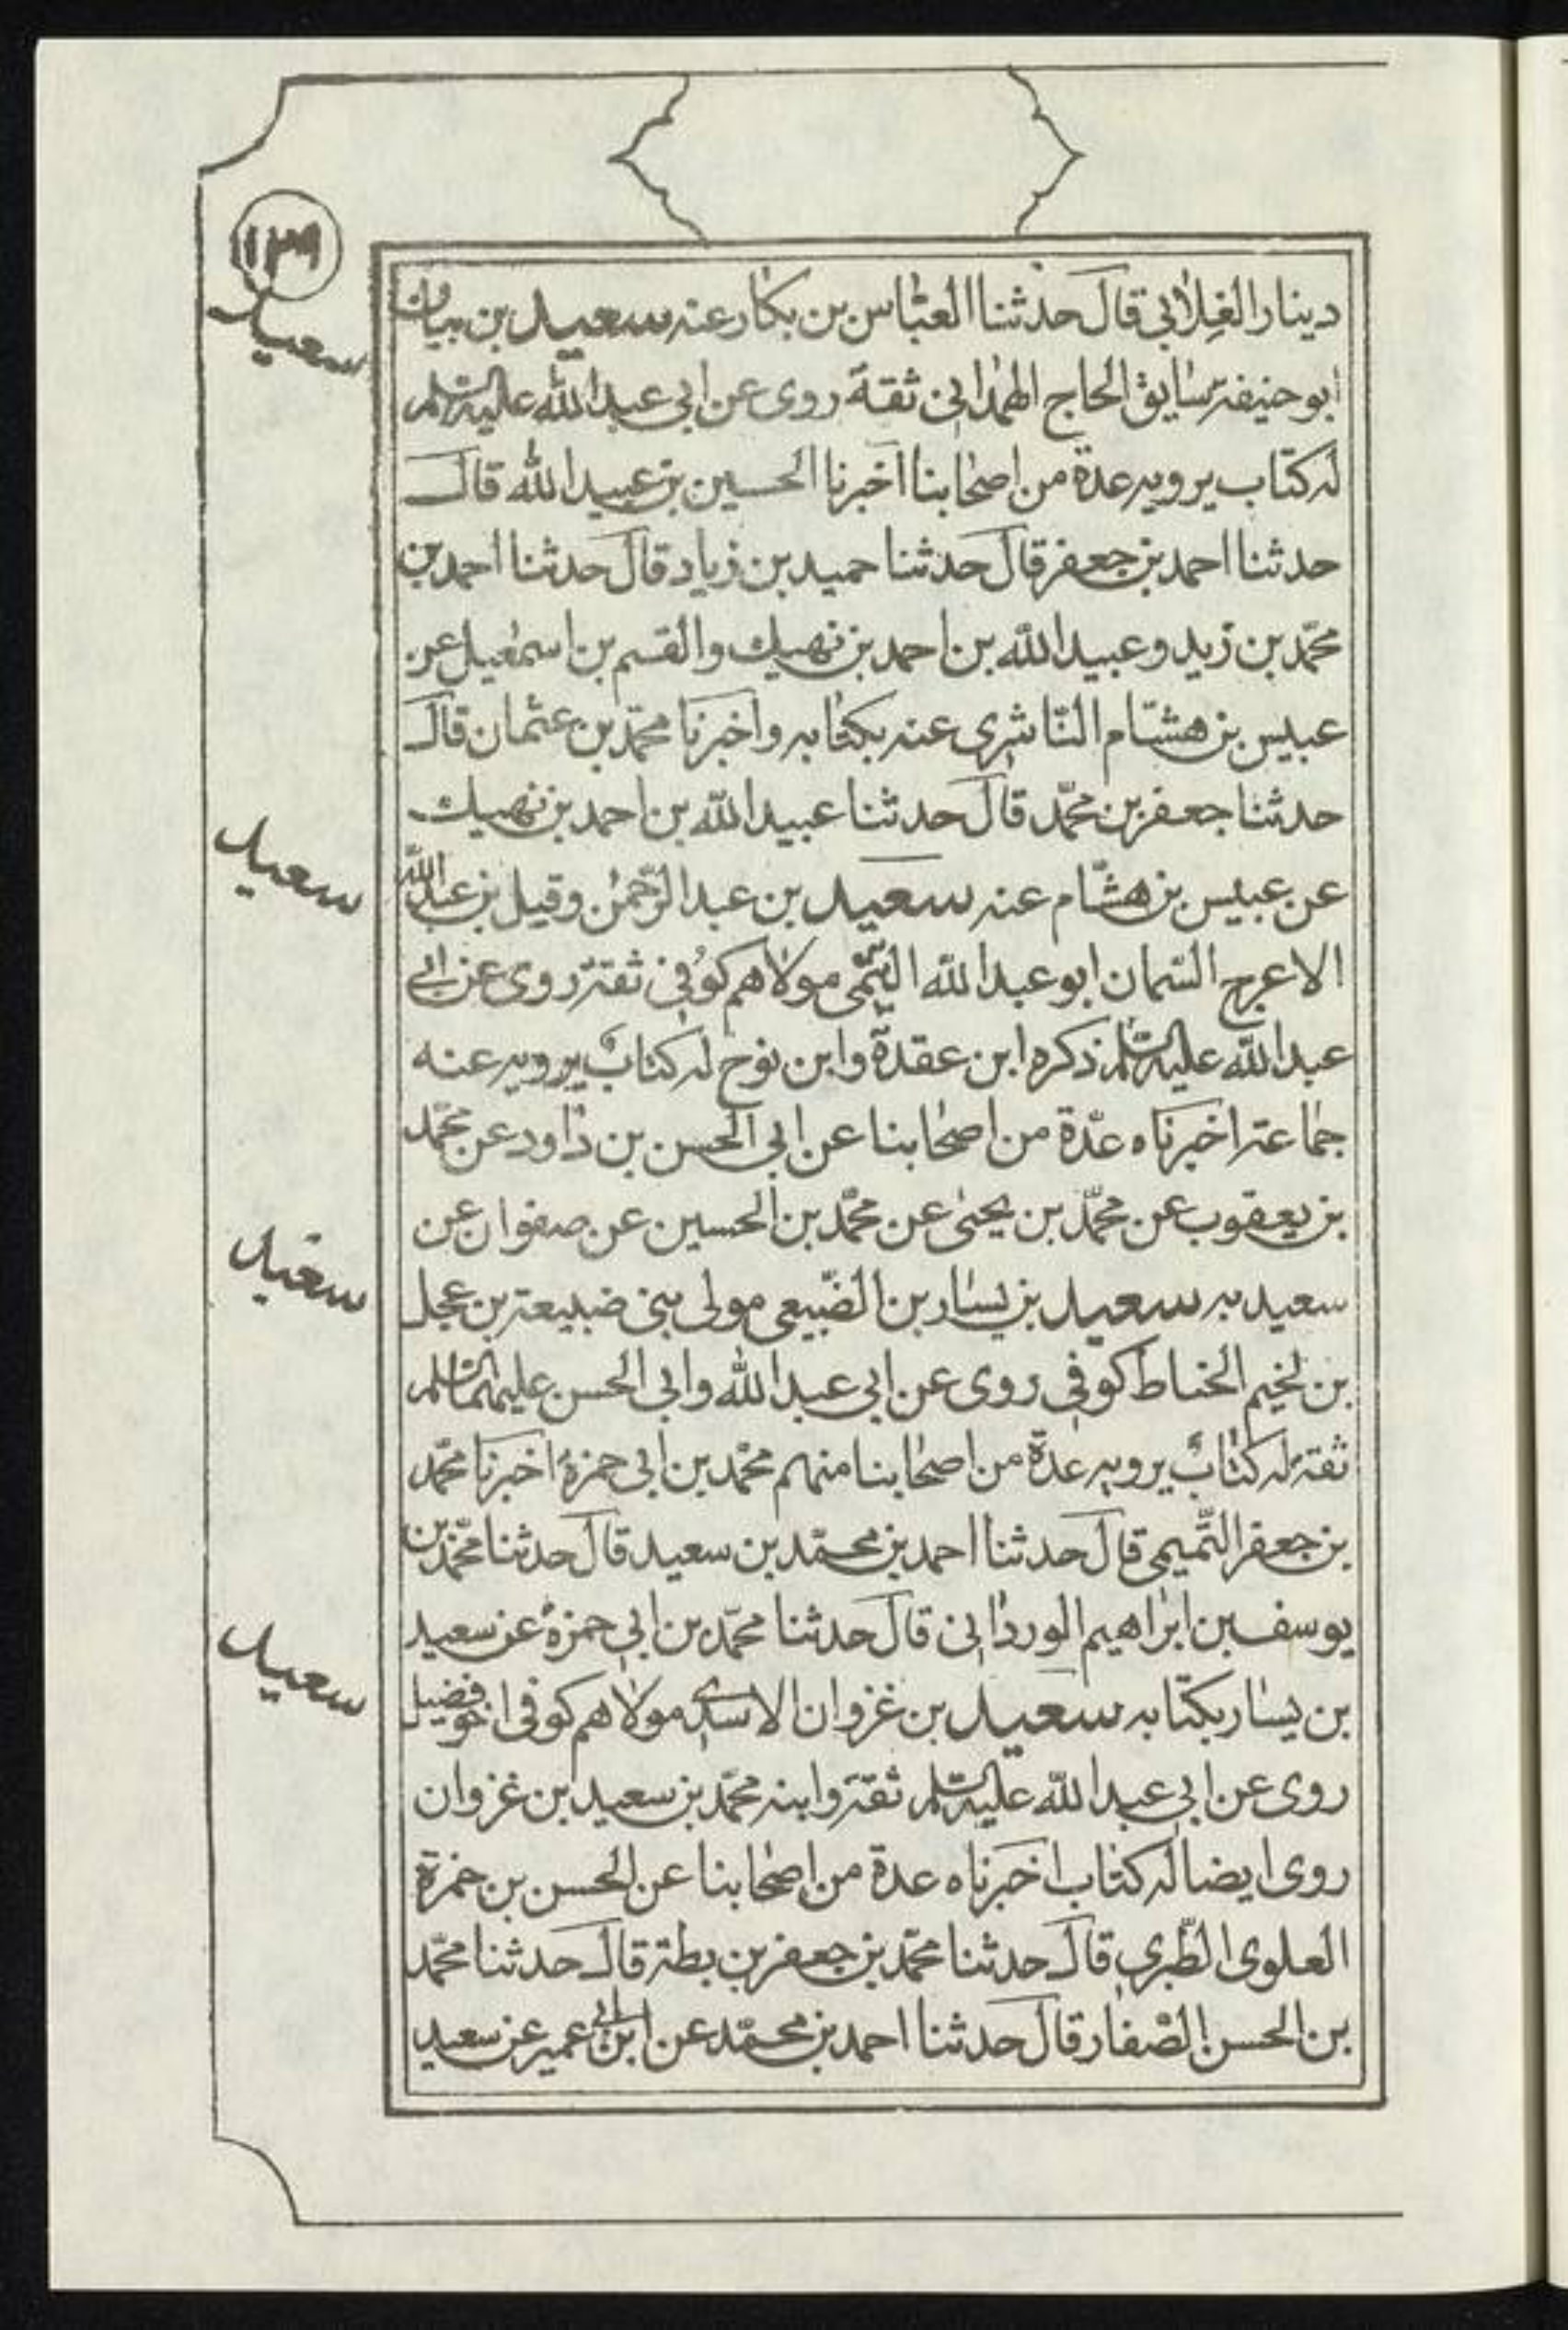 ١٢٩
سعيد
دينار الغلابي قال حدثنا العباس بن بكار عنه سعيد بن بيان
ابو حنيفة سايق الحاج الهمداني ثقة روى عن ابي عبد الله عليه السلم
له كتاب يرويه عدة من اصحابنا اخبرنا الحسين بن عبيد الله قال
حدثنا احمد بن جعفر قال حدثنا حميد بن زياد قال حدثنا احمد بن
محمد بن زيد و عبيد الله بن احمد بن نهيك والقسم بن اسمعيل عن
عبيس بن هشام الناشرى عنه بكتابه واخبرنا محمد بن عثمان قال
حدثنا جعفر بن محمد قال حدثنا عبيد الله بن احمد بن نهيك
سعيد
عن عبيس بن هشام عنه سعيد بن عبد الرحمن وقيل بن عبد الله
الاعرج السمان ابو عبد الله التيمى مولاهم كوفى ثقة روى عن ابى
عبد الله عليه السلم ذكره ابن عقدة وابن نوح له كتاب يرويه عنه
جماعة اخبرناه عدة من اصحابنا عن ابى الحسن بن داود عن محمد
بن يعقوب عن محمد بن يحيى عن محمد بن الحسين عن صفوان عن
سعيد
سعيد به سعيد بن يسار بن الضبيعى مولى بنى ضبيعة بن عجل
بن لخيم الحناط كوفى روى عن ابى عبد الله وابى الحسن عليهما السلم
ثقة له كتاب يرويه عدة من اصحابنا منهم محمد بن ابى حمزة اخبرنا محمد
بن جعفر التميمى قال حدثنا احمد بن محمد بن سعيد قال حدثنا محمد بن
يوسف بن ابراهيم الوردانى قال حدثنا محمد بن ابى حمزة عن سعيد
سعيد
بن يسار بكتابه سعيد بن غزوان الاسدى مولاهم كوفى اخو فضيل
روى عن ابى عبد الله عليه السلم ثقة وابنه محمد بن سعيد بن غزوان
روى ايضا له كتاب اخبرناه عدة من اصحابنا عن الحسن بن حمزة
العلوى الطبرى قال حدثنا محمد بن جعفر بن بطة قال حدثنا محمد
بن الحسن الصفار قال حدثنا احمد بن محمد عن ابن ابى عمير عن سعيد